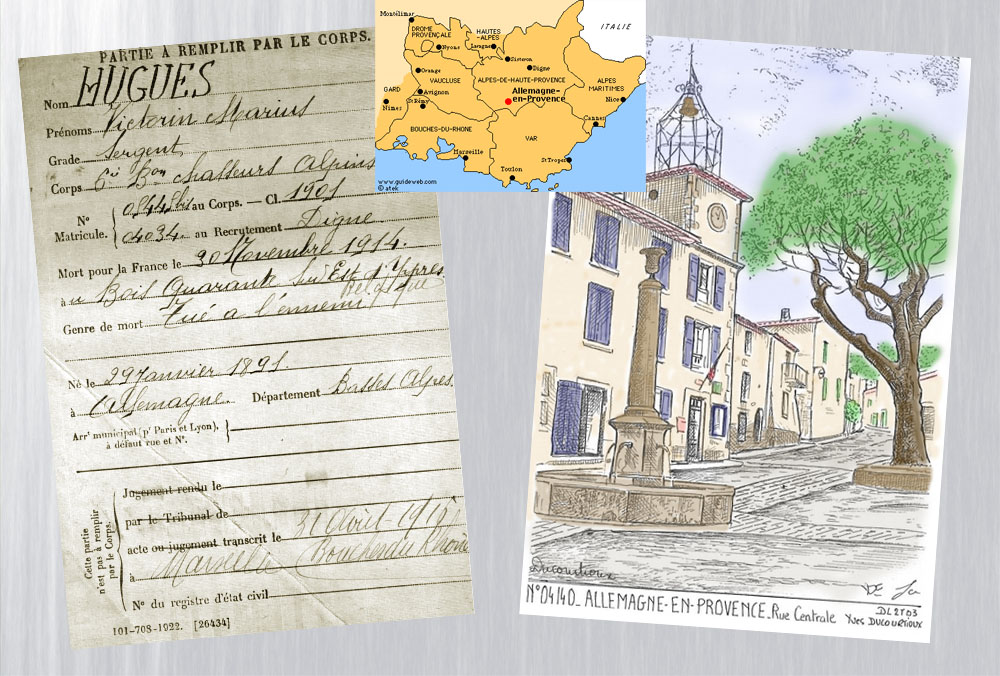 PARTIE À REMPLIR PAR LE CORPS.
Nom HUGUES
Prénoms Victorin Marius
Grade Sergent
Corps 6e Bon Chasseurs Alpins
N° Matricule.
au Corps. — Cl. 1901
04034 au Recrutement Digne
Mort pour la France le 30 Novembre 1914.
à u Bois Quarante Sud Est d'Ypres
Belgique
Genre de mort Tué a l'ennemi
Né le 29 Janvier 1891.
à Allemagne. Département Basses Alpes
Arrt municipal (pr Paris et Lyon),
à défaut rue et N°.
Cette partie
n'est pas à remplir
par le Corps.
Jugement rendu le
par le Tribunal de
acte ou jugement transcrit le 31 Août
à Marseille Bouches du Rhône
N° du registre d'état civil
101-708-1922. [26434]
Montélimar
DROME PROVENÇALE
Nyons
HAUTES-ALPES
Laragne
ITALIE
Sisteron
Digne
Orange
VAUCLUSE
ALPES-DE-HAUTE-PROVENCE
Allemagne-en-Provence
ALPES MARITIMES
GARD
Avignon
Nice
Nimes
St Rémy
Cannes
BOUCHES-DU-RHONE
VAR
Marseille
St Tropez
Toulon
www.guideweb.com
© atek
Ducourtioux
N°04140_ ALLEMAGNE-EN-PROVENCE_Rue Centrale
DL 2T03
Yves DUCOURTIOUX